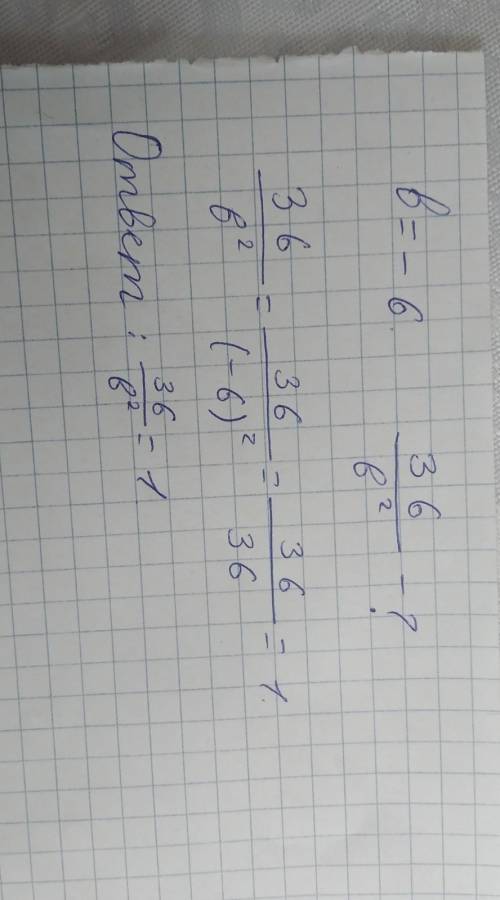 в = - 6. 36/в² - ?
36/в² = 36/(-6)² = 36/36 = 1.
Ответ: 36/в² = 1